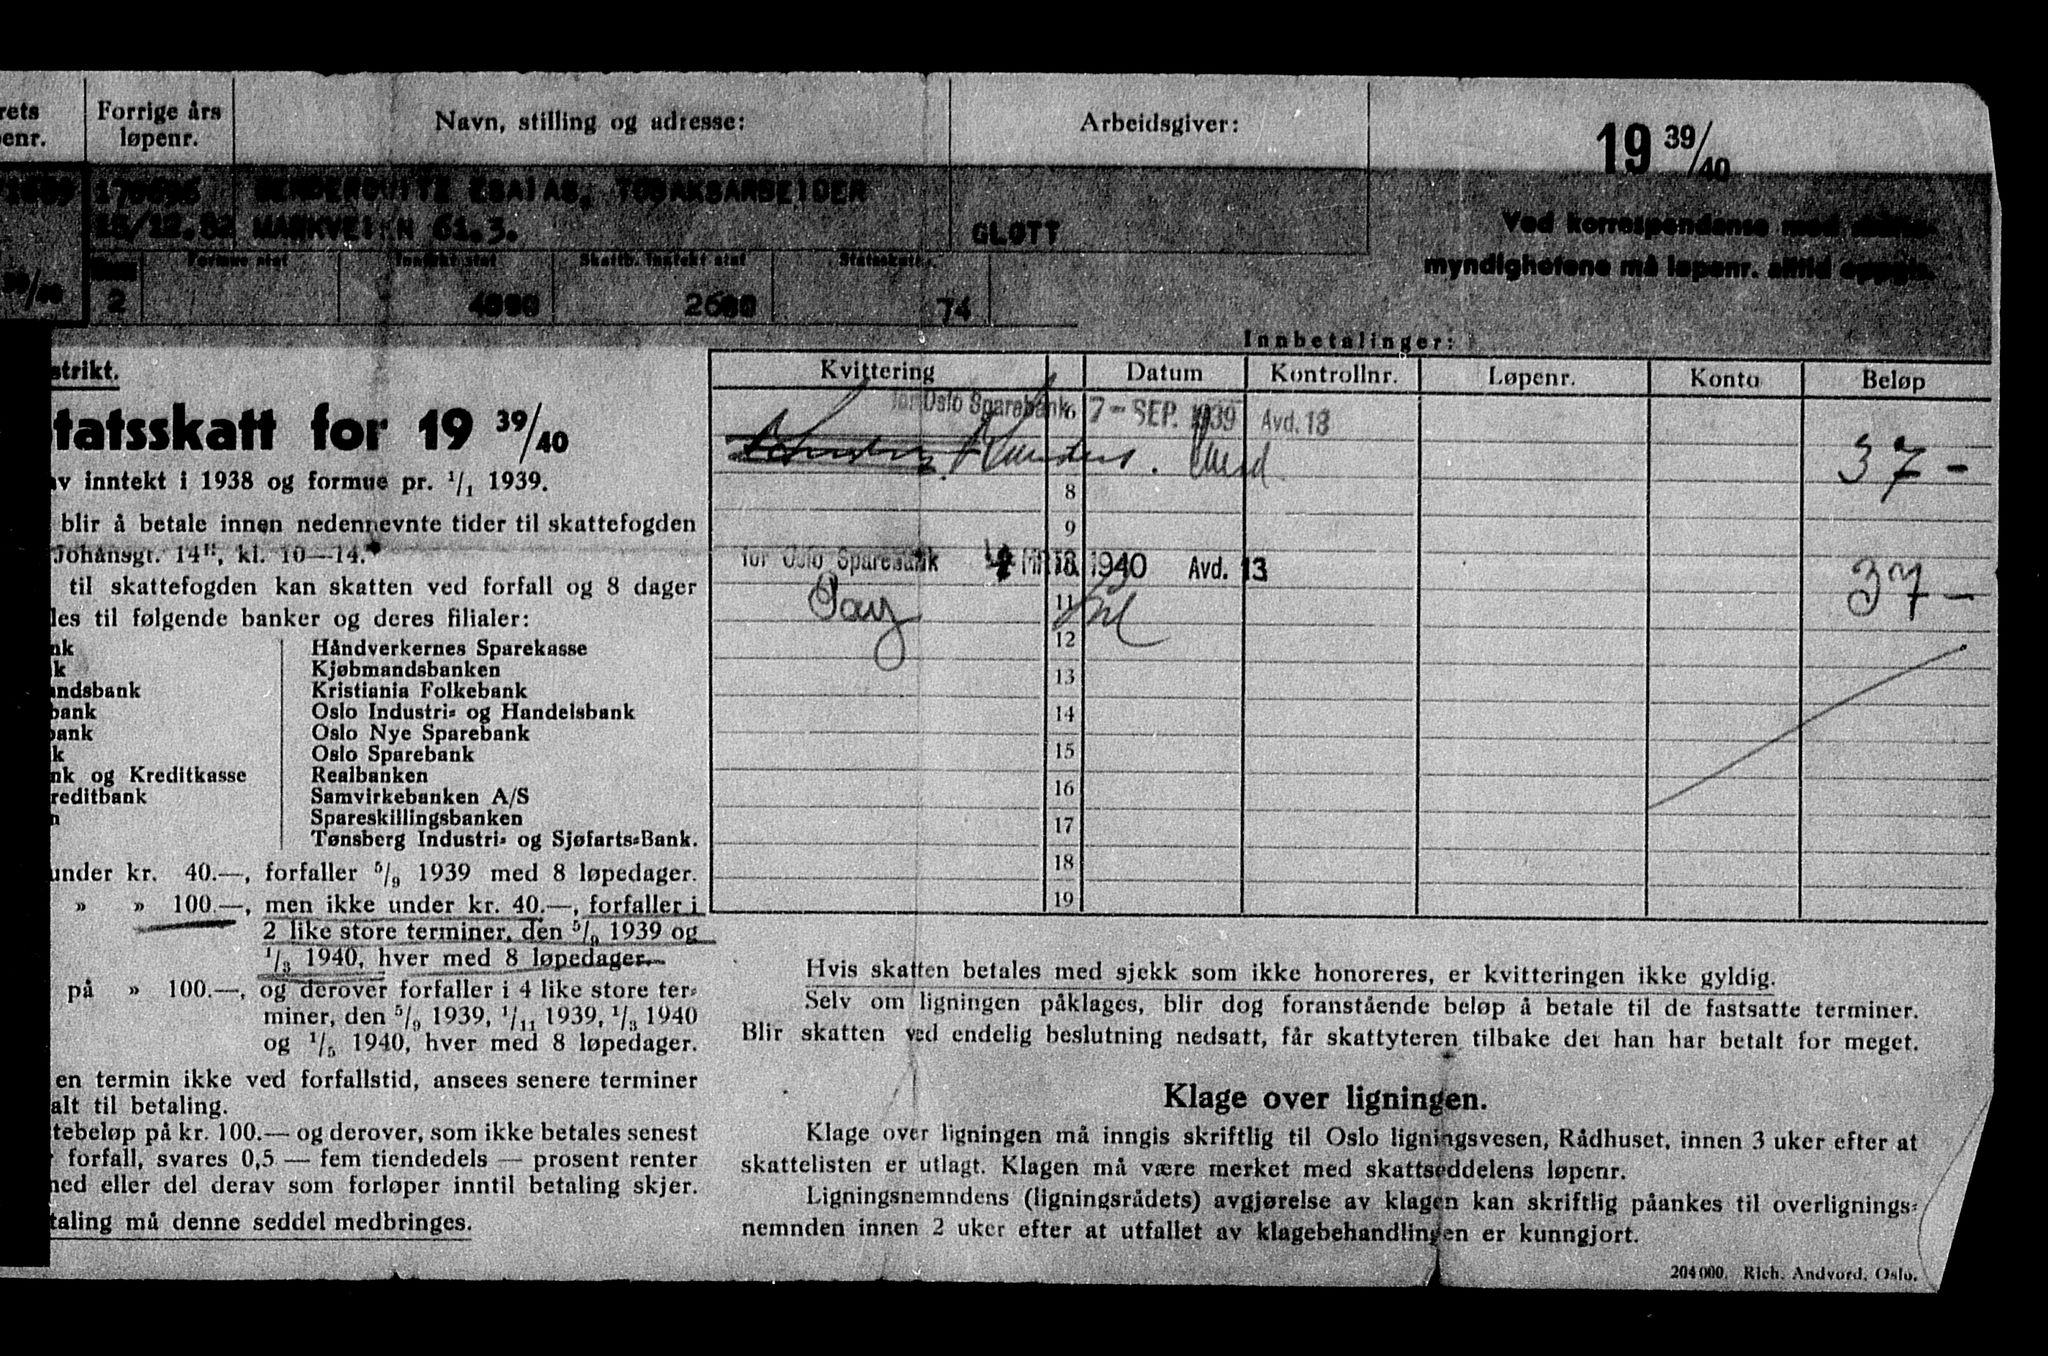 rets
Forrige års
Navn, stilling og adresse:
Arbeidsgiver:
19 39/40
enr.
løpenr.
ESAIAS, TOBAKSARBEIDER
15/12.82 MARKVEIEN 61.3.
GLØTT
Ved korrespondanse med skatte-
myndighetene må løpenr. alltid oppgis.
Formue stat
Inntekt stat
Skattb. inntekt stat
Statsskatt
39/40
2
4000
2600
74
Innbetalinger:
strikt.
tatsskatt for 19 39/40
av inntekt i 1938 og formue pr. 1/1 1939.
blir å betale innen nedennevnte tider til skattefogden
Johansgt. 14II, kl. 10—14.
til skattefogden kan skatten ved forfall og 8 dager
les til følgende banker og deres filialer:
nk
k
andsbank
bank
bank
k
nk og Kreditkasse
reditbank
n
Håndverkernes Sparekasse
Kjøbmandsbanken
Kristiania Folkebank
Oslo Industri- og Handelsbank
Oslo Nye Sparebank
Oslo Sparebank
Realbanken
Samvirkebanken A/S
Spareskillingsbanken
Tønsberg Industri- og Sjøfarts-Bank.
under kr. 40.—, forfaller 5/9 1939 med 8 løpedager.
» » 100.—, men ikke under kr. 40.—, forfaller i
2 like store terminer, den 5/9 1939 og
1/3 1940, hver med 8 løpedager.
på » 100.—, og derover forfaller i 4 like store ter-
miner, den 5/9 1939, 1/11 1939, 1/3 1940
og 1/5 1940, hver med 8 løpedager.
en termin ikke ved forfallstid, ansees senere terminer
alt til betaling.
tebeløp på kr. 100.— og derover, som ikke betales senest
r forfall, svares 0,5 — fem tiendedels — prosent renter
ned eller del derav som forløper inntil betaling skjer.
taling må denne seddel medbringes.
Kvittering
Datum
Kontrollnr.
Løpenr.
Konto
Beløp
for Oslo Sparebank 6 7-SEP. 1939 Avd. 13
37 -
8
9
for Oslo Sparebank 1940 Avd. 13
37 -
11
12
13
14
15
16
17
18
19
Hvis skatten betales med sjekk som ikke honoreres, er kvitteringen ikke gyldig.
Selv om ligningen påklages, blir dog foranstående beløp å betale til de fastsatte terminer.
Blir skatten ved endelig beslutning nedsatt, får skattyteren tilbake det han har betalt for meget.
Klage over ligningen.
Klage over ligningen må inngis skriftlig til Oslo ligningsvesen, Rådhuset, innen 3 uker efter at
skattelisten er utlagt. Klagen må være merket med skattseddelens løpenr.
Ligningsnemndens (ligningsrådets) avgjørelse av klagen kan skriftlig påankes til overlignings-
nemnden innen 2 uker efter at utfallet av klagebehandlingen er kunngjort.
204 000. Rich. Andvord, Oslo.